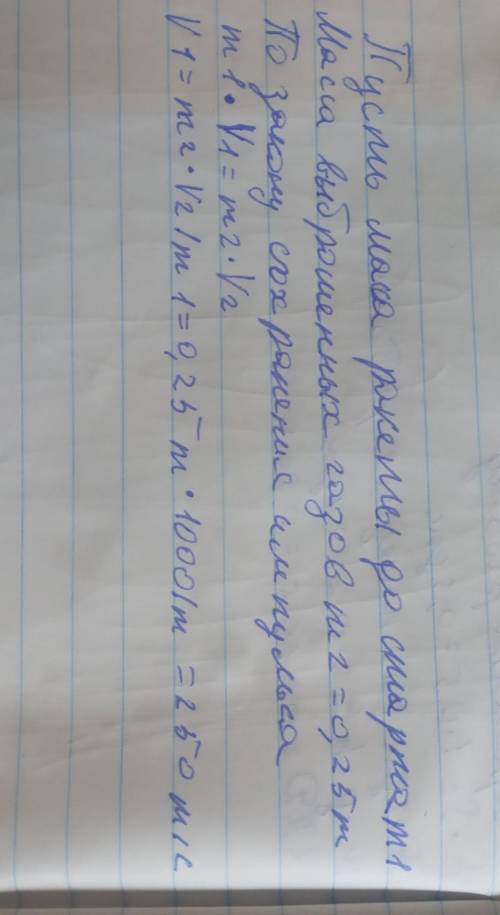 Пусть маса ракеты до старта m1
Масса выброшенных газов m2=0,25m
По закону сохранения импульса
m1·V1=m2·V2
V1=m2·V2/m1=0,25m·1000/m=250м/с